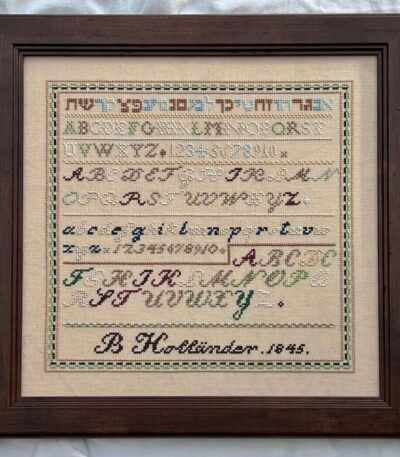 אבגדהוזחטיכךלמםסנןעפצץקרשת
ABCDEFGHIKLMNOPQRST
UVWXYZ. 12345678910.
ABCDEFGHIKLMN
OPQRSTUVWXYZ.
abcdefghiklmnopqrstuvw
xyz. 12345678910. ABCDE
FGHIKLMNOP
QRSTUVWXYZ.
B Holländer. 1845.